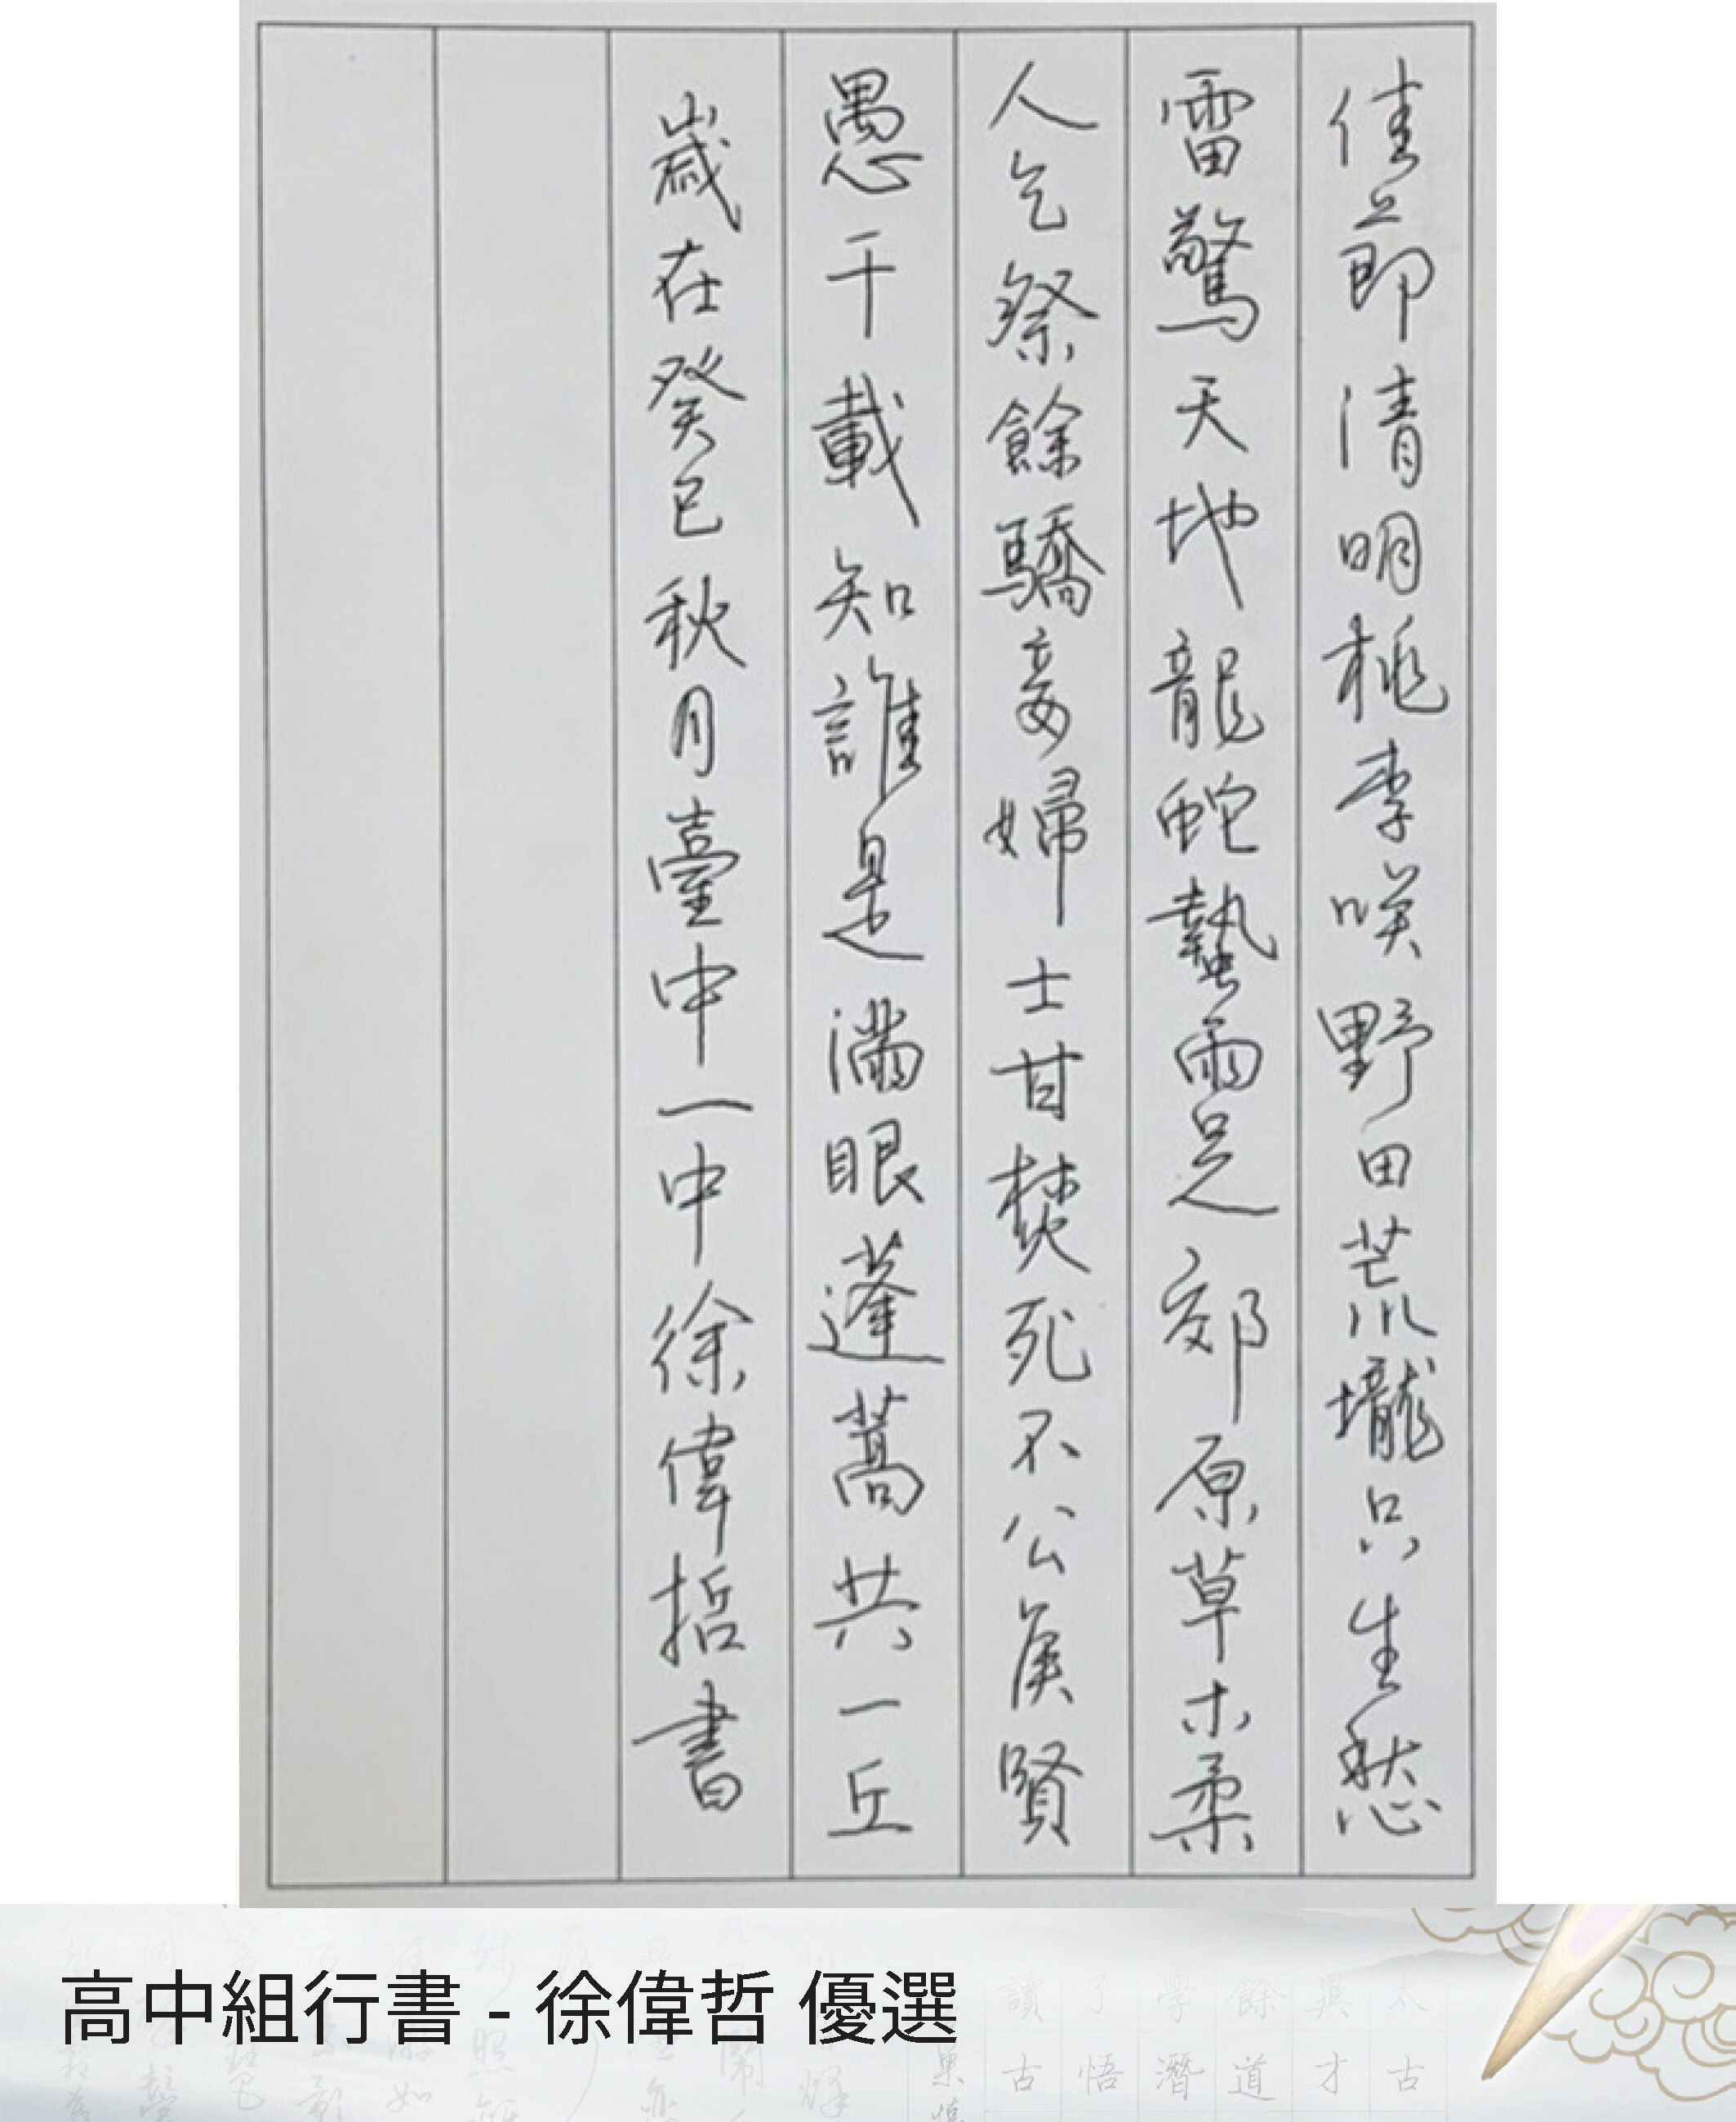 佳節清明桃李咲野田荒壠只生愁
雷驚天地龍蛇蟄雨足郊原草木柔
人乞祭餘驕妾婦士甘焚死不公侯賢
愚千載知誰是滿眼蓬蒿共一丘
歲在癸巳秋月臺中一中徐偉哲書
高中組行書 - 徐偉哲 優選
讀了學餘與太
古悟潛道才古